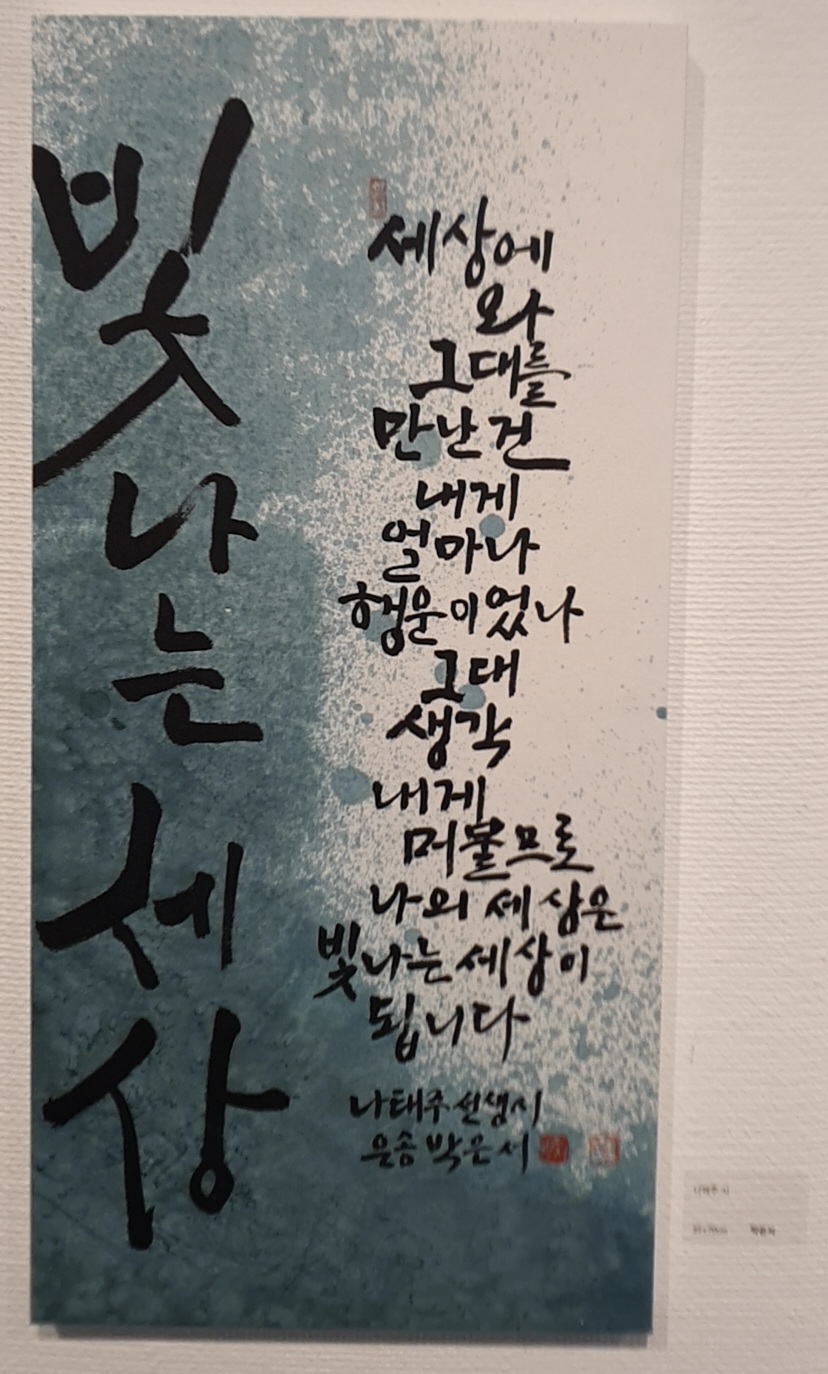 빛나는 세상
세상에
와
그대를
만난 건
내게
얼마나
행운이었나
그대
생각
내게
머물므로
나의 세상은
빛나는 세상이
됩니다
나태주 선생 시
은송 박은서
나태주 시
박은서